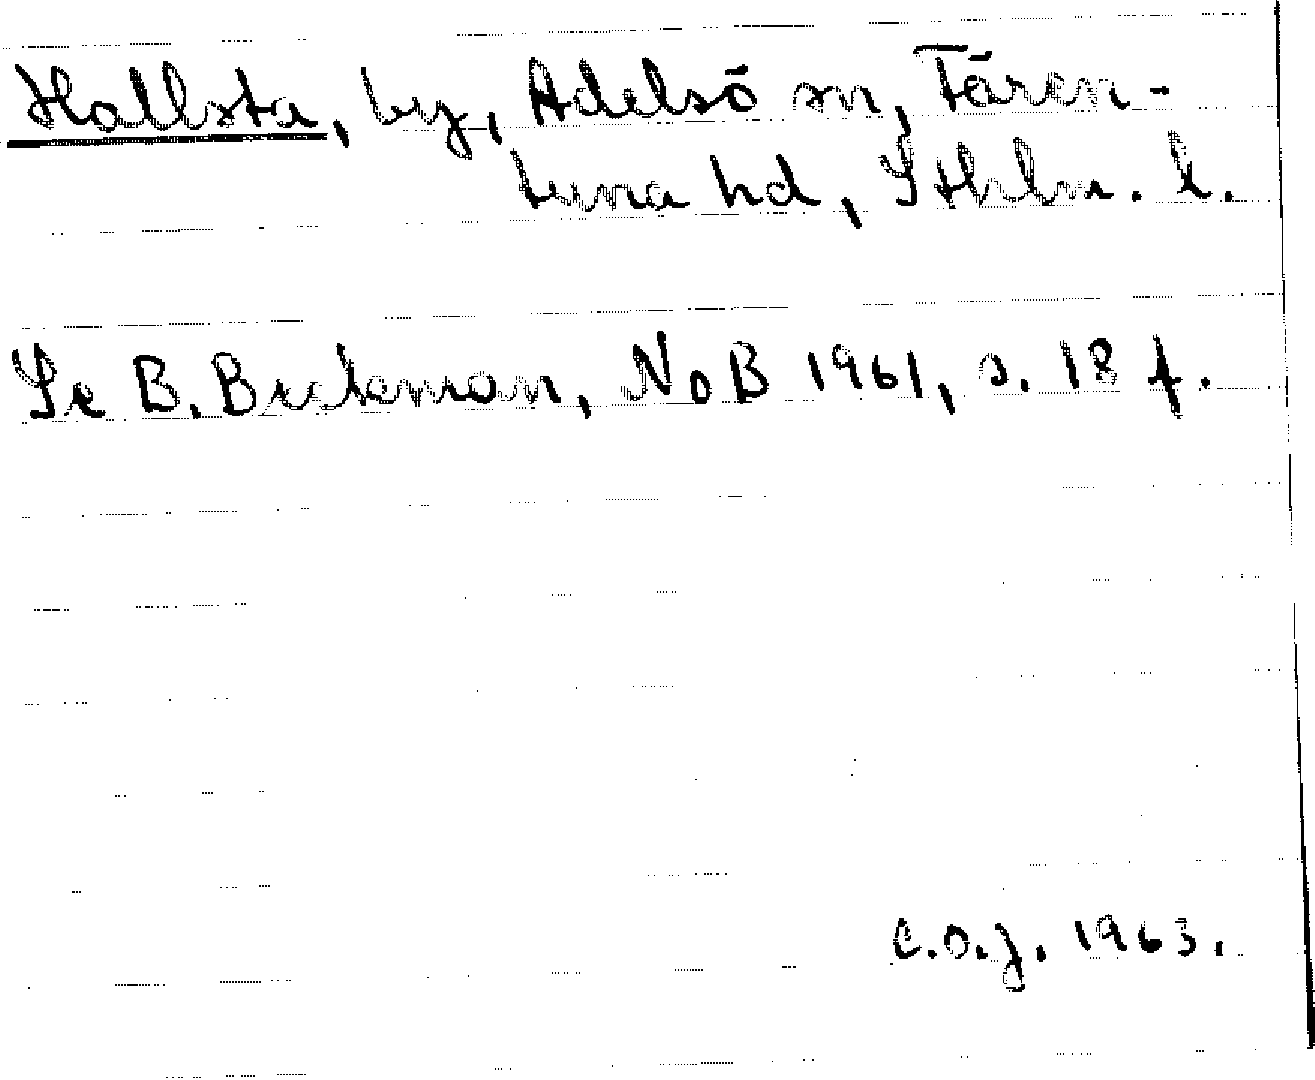 Hallsta, by, Adelsö sn, Fären-
tuna hd, Sthlm. l.
Se B. Beckman, NoB 1961, s. 18 f.
C.O.J. 1963.